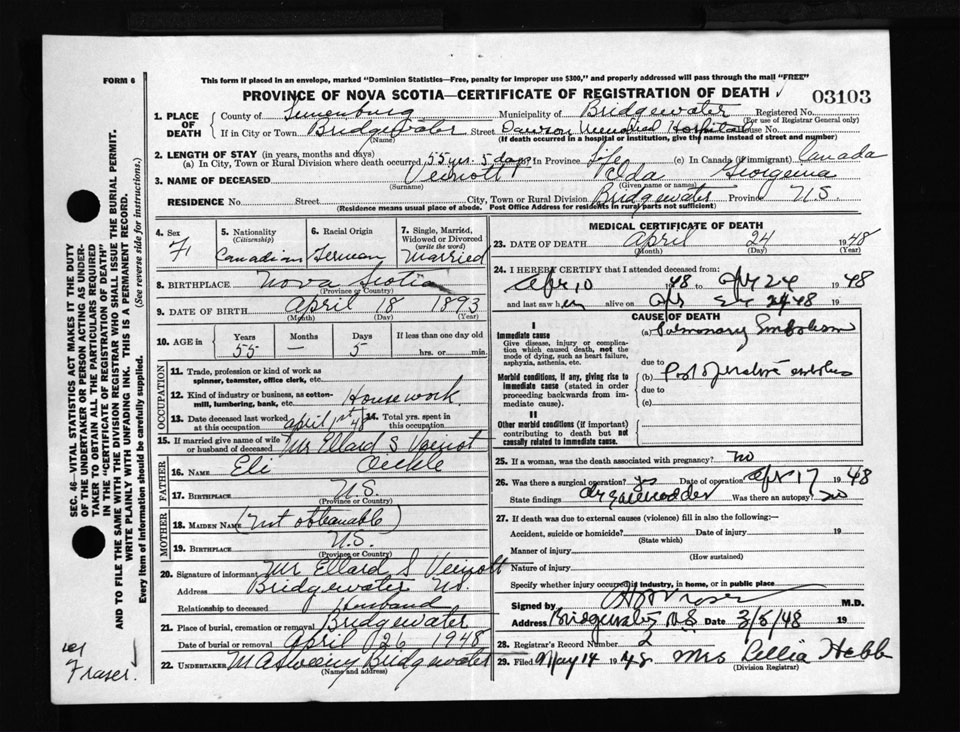 FORM 6
This form if placed in an envelope, marked "Dominion Statistics—Free, penalty for improper use $300," and properly addressed will pass through the mail "FREE"
PROVINCE OF NOVA SCOTIA—CERTIFICATE OF REGISTRATION OF DEATH
03103
1. PLACE OF DEATH
County of Lunenburg Municipality of Bridgewater Registered No.
(For use of Registrar General only)
If in City or Town Bridgewater Street Dawson Memorial Hospital House No.
(Name) (If death occurred in a hospital or institution, give the name instead of street and number)
2. LENGTH OF STAY (in years, months and days)
(a) In City, Town or Rural Division where death occurred 55 yrs. 5 days In Province Life (c) In Canada (if immigrant) Canada
3. NAME OF DECEASED Veinott Ida Georgenia
(Surname) (Given name or names)
RESIDENCE No. Street City, Town or Rural Division Bridgewater Province N.S.
(Residence means usual place of abode. Post Office Address for residents in rural parts not sufficient)
4. Sex
F
5. Nationality
(Citizenship)
Canadian
6. Racial Origin
German
7. Single, Married, Widowed or Divorced
(write the word)
Married
8. BIRTHPLACE Nova Scotia
(Province or Country)
9. DATE OF BIRTH April 18 1893
(Month) (Day) (Year)
10. AGE IN
Years Months Days If less than one day old
55 — 5 hrs. or min.
OCCUPATION
11. Trade, profession or kind of work as spinner, teamster, office clerk, etc.
12. Kind of industry or business, as cotton-mill, lumbering, bank, etc. Housework
13. Date deceased last worked at this occupation April 1st 48
14. Total yrs. spent in this occupation
15. If married give name of wife or husband of deceased Mr Ellard S Veinot
FATHER
16. NAME Eli Oickle
17. BIRTHPLACE N.S.
(Province or Country)
MOTHER
18. MAIDEN NAME (Not obtainable)
19. BIRTHPLACE N.S.
(Province or Country)
20. Signature of informant Mr Ellard S Veinott
Address Bridgewater N.S.
Relationship to deceased Husband
21. Place of burial, cremation or removal Bridgewater
Date of burial or removal April 26 1948
22. UNDERTAKER M A Sweeny Bridgewater
(Name and address)
MEDICAL CERTIFICATE OF DEATH
23. DATE OF DEATH April 24 1948
(Month) (Day)
24. I HEREBY CERTIFY that I attended deceased from
Apr 10 1948 to Apr 24 1948
and last saw her alive on Apr 24 1948
CAUSE OF DEATH
I
Immediate cause
Give disease, injury or complication which caused death, not the mode of dying, such as heart failure, asphyxia, asthenia, etc.
(a) Pulmonary Embolism
due to
Morbid conditions, if any, giving rise to immediate cause (stated in order proceeding backwards from immediate cause).
(b) Post operative embolus
due to
(c)
II
Other morbid conditions (if important) contributing to death but not causally related to immediate cause.
25. If a woman, was the death associated with pregnancy? no
26. Was there a surgical operation? yes Date of operation Apr 17 1948
State findings Was there an autopsy? no
27. If death was due to external causes (violence) fill in also the following:—
Accident, suicide or homicide? Date of injury 19
(State which)
Manner of injury
(How sustained)
Nature of injury
Specify whether injury occurred in industry, in home, or in public place
Signed by M.D.
Address Bridgewater N.S. Date 3/5/48 19
28. Registrar's Record Number 2
29. Filed May 14 1948 Mrs Lellia Hebb
(Division Registrar)
SEC. 46—VITAL STATISTICS ACT MAKES IT THE DUTY OF THE UNDERTAKER OR PERSON ACTING AS UNDERTAKER TO OBTAIN ALL THE PARTICULARS REQUIRED IN THE "CERTIFICATE OF REGISTRATION OF DEATH" AND TO FILE THE SAME WITH THE DIVISION REGISTRAR WHO SHALL ISSUE THE BURIAL PERMIT.
WRITE PLAINLY WITH UNFADING INK. THIS IS A PERMANENT RECORD.
Every item of Information should be carefully supplied. (See reverse side for instructions.)
Fraser.